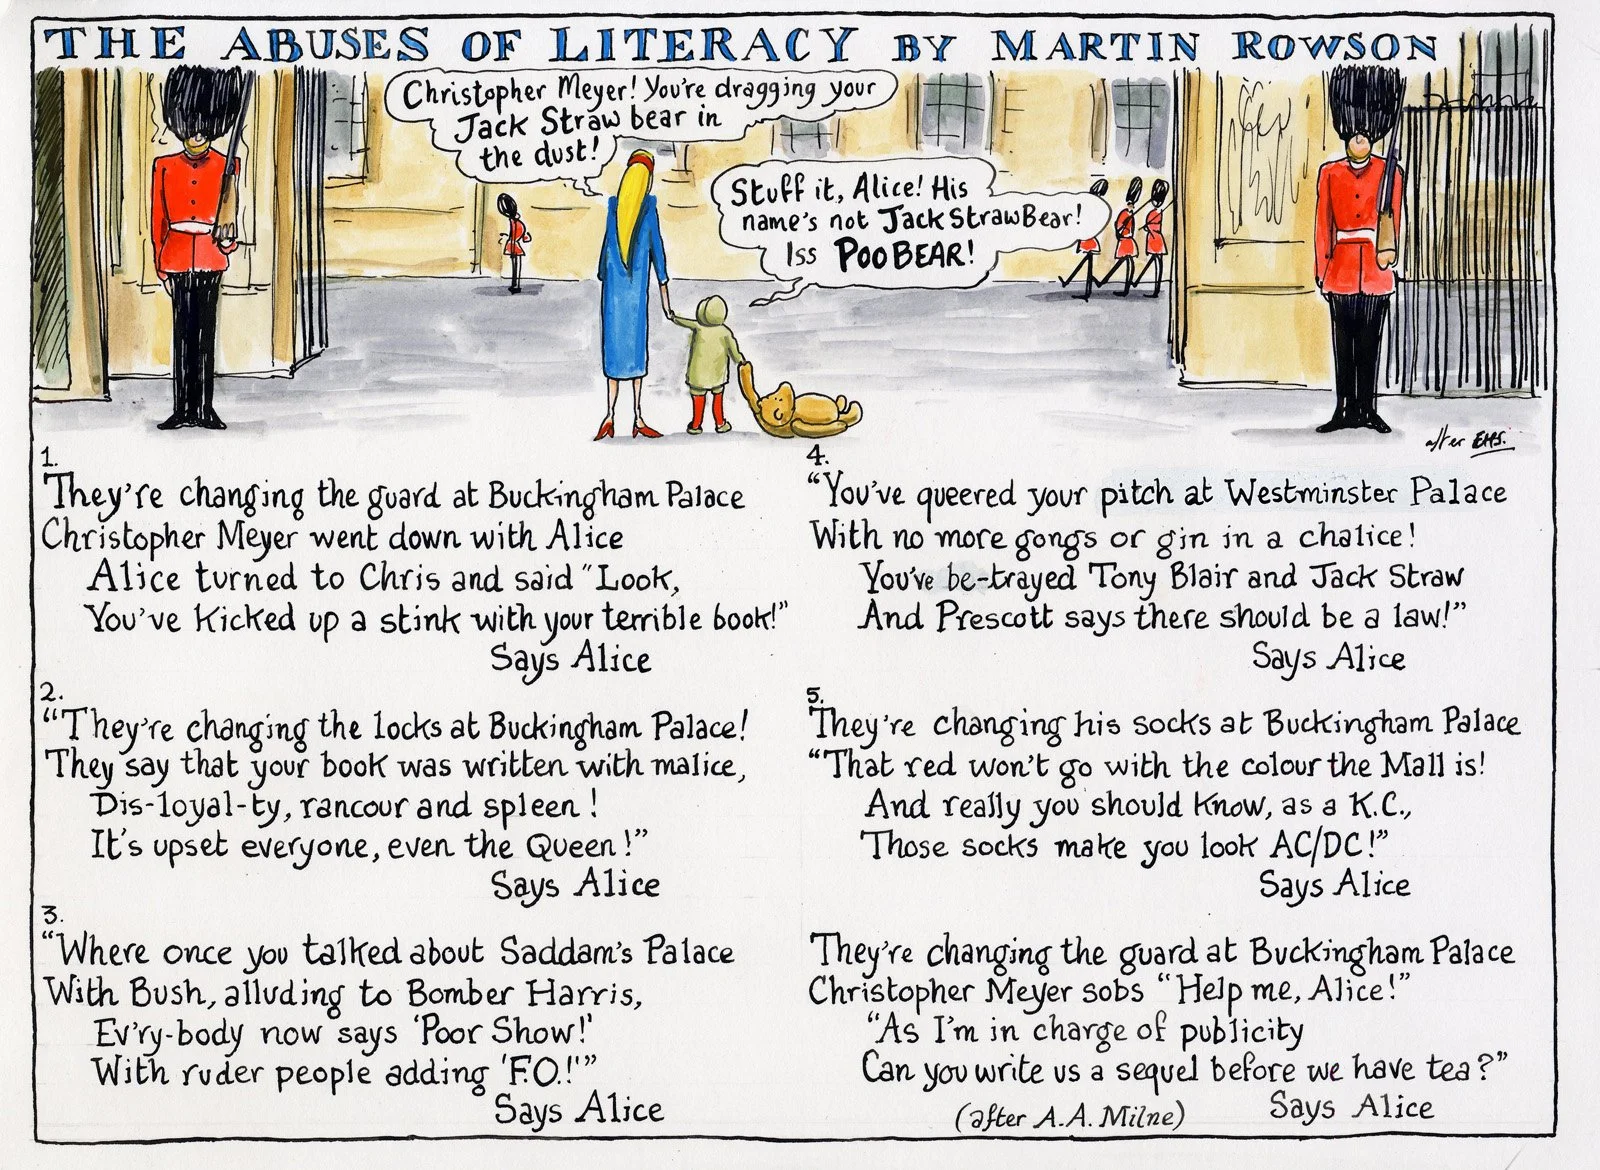 THE ABUSES OF LITERACY BY MARTIN ROWSON
Christopher Meyer! You're dragging your
Jack Straw bear in
the dust!
Stuff it, Alice! His
name's not Jack Straw Bear!
Iss POOBEAR!
after EHS.
1.
They're changing the guard at Buckingham Palace
Christopher Meyer went down with Alice
Alice turned to Chris and said "Look,
You've kicked up a stink with your terrible book!"
Says Alice
2.
"They're changing the locks at Buckingham Palace!
They say that your book was written with malice,
Dis-loyal-ty, rancour and spleen!
It's upset everyone, even the Queen!"
Says Alice
3.
"Where once you talked about Saddam's Palace
With Bush, alluding to Bomber Harris,
Ev'ry-body now says 'Poor Show!'
With ruder people adding 'F.O.!'"
Says Alice
4.
"You've queered your pitch at Westminster Palace
With no more gongs or gin in a chalice!
You've be-trayed Tony Blair and Jack Straw
And Prescott says there should be a law!"
Says Alice
5.
They're changing his socks at Buckingham Palace
"That red won't go with the colour the Mall is!
And really you should know, as a K.C.,
Those socks make you look AC/DC!"
Says Alice
They're changing the guard at Buckingham Palace
Christopher Meyer sobs "Help me, Alice!"
"As I'm in charge of publicity
Can you write us a sequel before we have tea?"
Says Alice
(after A.A. Milne)